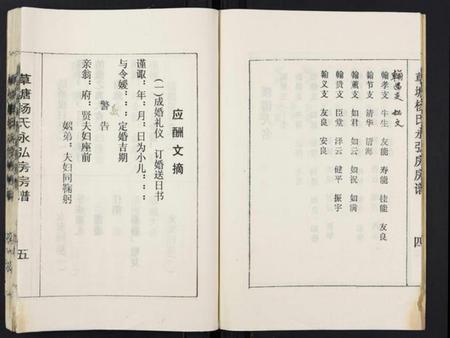 草塘杨氏永弘房房谱
四
翰孝支 牛生 友能 寿能 桂能 友良
翰节支 清华 清海
翰薰支 如君 如云 如祝 如满
翰贵支 臣堂 泽云 健平 振宇
翰义支 友良 安良
应酬文摘
(一)成婚礼仪 订婚送日书
谨诹:年:月:日为小儿:::
与令媛:::定婚吉期
警告
亲翁:府:贤夫妇座前
姻弟:夫妇同鞠躬
草塘杨氏永弘房房谱
五